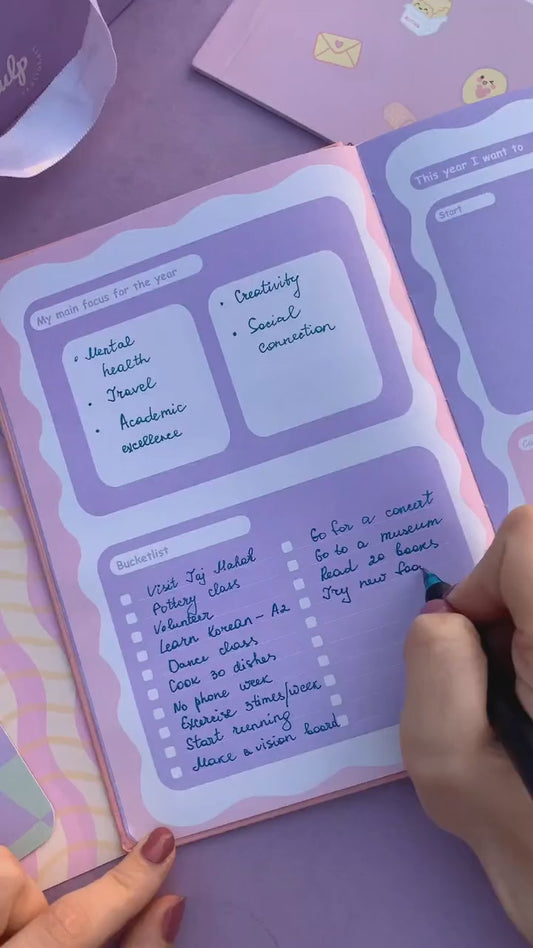 ulp
This year I want to
Start
My main focus for the year
• Mental
health
• Travel
• Academic
excellence
• Creativity
• Social
connection
Bucketlist
Visit Taj Mahal
Pottery class
Volunteer
Learn Korean - A2
Dance class
Cook 30 dishes
No phone week
Excercise 3times/week
Start running
Make a vision board
Go for a concert
Go to a museum
Read 20 books
Try new foo